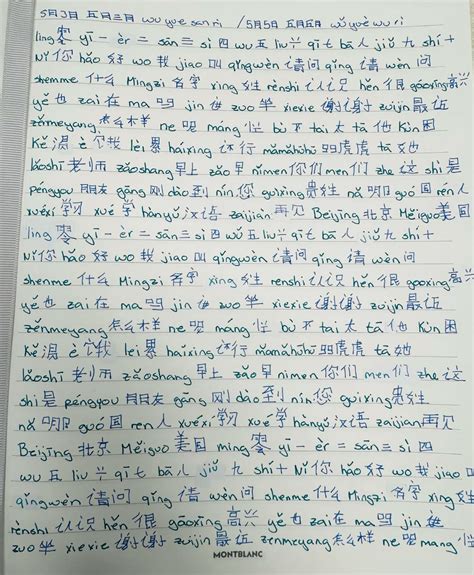 5月3日 五月三日 wǔ yuè sān rì /5月5日 五月五 wǔ yuè wǔ rì
líng 零 yī 一 èr 二 sān 三 sì 四 wǔ 五 liù 六 qī 七 bā 八 jiǔ 九 shí 十
Nǐ 你 hǎo 好 wǒ 我 jiào 叫 qǐngwèn 请问 qǐng 请 wèn 问
shenme 什么 Mingzi 名字 xìng 姓 rènshi 认识 hěn 很 gāoxìng 高兴
yě 也 zai 在 ma 吗 jin 进 zuo 坐 xiexie 谢谢 zuìjìn 最近
zěnmeyang 怎么样 ne 呢 máng 忙 bù 不 tai 太 tā 他 Kùn 困
Kě 渴 è 饿 lèi 累 haixing 还行 mǎmǎhǔhǔ 马马虎虎 tā 她
lǎoshī 老师 zǎoshang 早上 zǎo 早 nǐmen 你们 men 们 zhe 这 shì 是
péngyou 朋友 gāng 刚 dào 到 nín 您 guìxìng 贵姓 nǎ 哪 guó 国 rén 人
xuéxí 学习 xué 学 hànyǔ 汉语 zaijian 再见 Beijing 北京 Měiguó 美国
líng 零 yī 一 èr 二 sān 三 sì 四 wǔ 五 liù 六 qī 七 bā 八 jiǔ 九 shí 十
Nǐ 你 hǎo 好 wǒ 我 jiao 叫 qǐngwèn 请问 qǐng 请 wèn 问
shenme 什么 Mingzi 名字 xìng 姓 rènshi 认识 hěn 很 gāoxìng 高兴
yě 也 zai 在 ma 吗 jìn 进 zuo 坐 xiexie 谢谢 zuìjìn 最近
zěnmeyang 怎么样 ne 呢 máng 忙 bù 不 tai 太 tā 他 Kùn 困
Kě 渴 è 饿 lèi 累 haixing 还行 mǎmǎhǔhǔ 马马虎虎 tā 她
lǎoshī 老师 zǎoshang 早上 zǎo 早 nǐmen 你们 men 们 zhe 这
shì 是 péngyou 朋友 gāng 刚 dào 到 nín 您 guìxìng 贵姓
nǎ 哪 guó 国 rén 人 xuéxí 学习 xué 学 hànyǔ 汉语 zaijian 再见
Beijīng 北京 Měiguó 美国 ming 零 yī 一 èr 二 sān 三 sì 四
wǔ 五 liù 六 qī 七 bā 八 jiǔ 九 shí 十 Nǐ 你 hǎo 好 wǒ 我 jiào 叫
qǐngwèn 请问 qǐng 请 wèn 问 shenme 什么 Mingzi 名字 xìng 姓
rènshi 认识 hěn 很 gāoxìng 高兴 yě 也 zai 在 ma 吗 jìn 进
zuo 坐 xiexie 谢谢 zuìjìn 最近 zenmeyang 怎么样 ne 呢 máng 忙
MONTBLANC